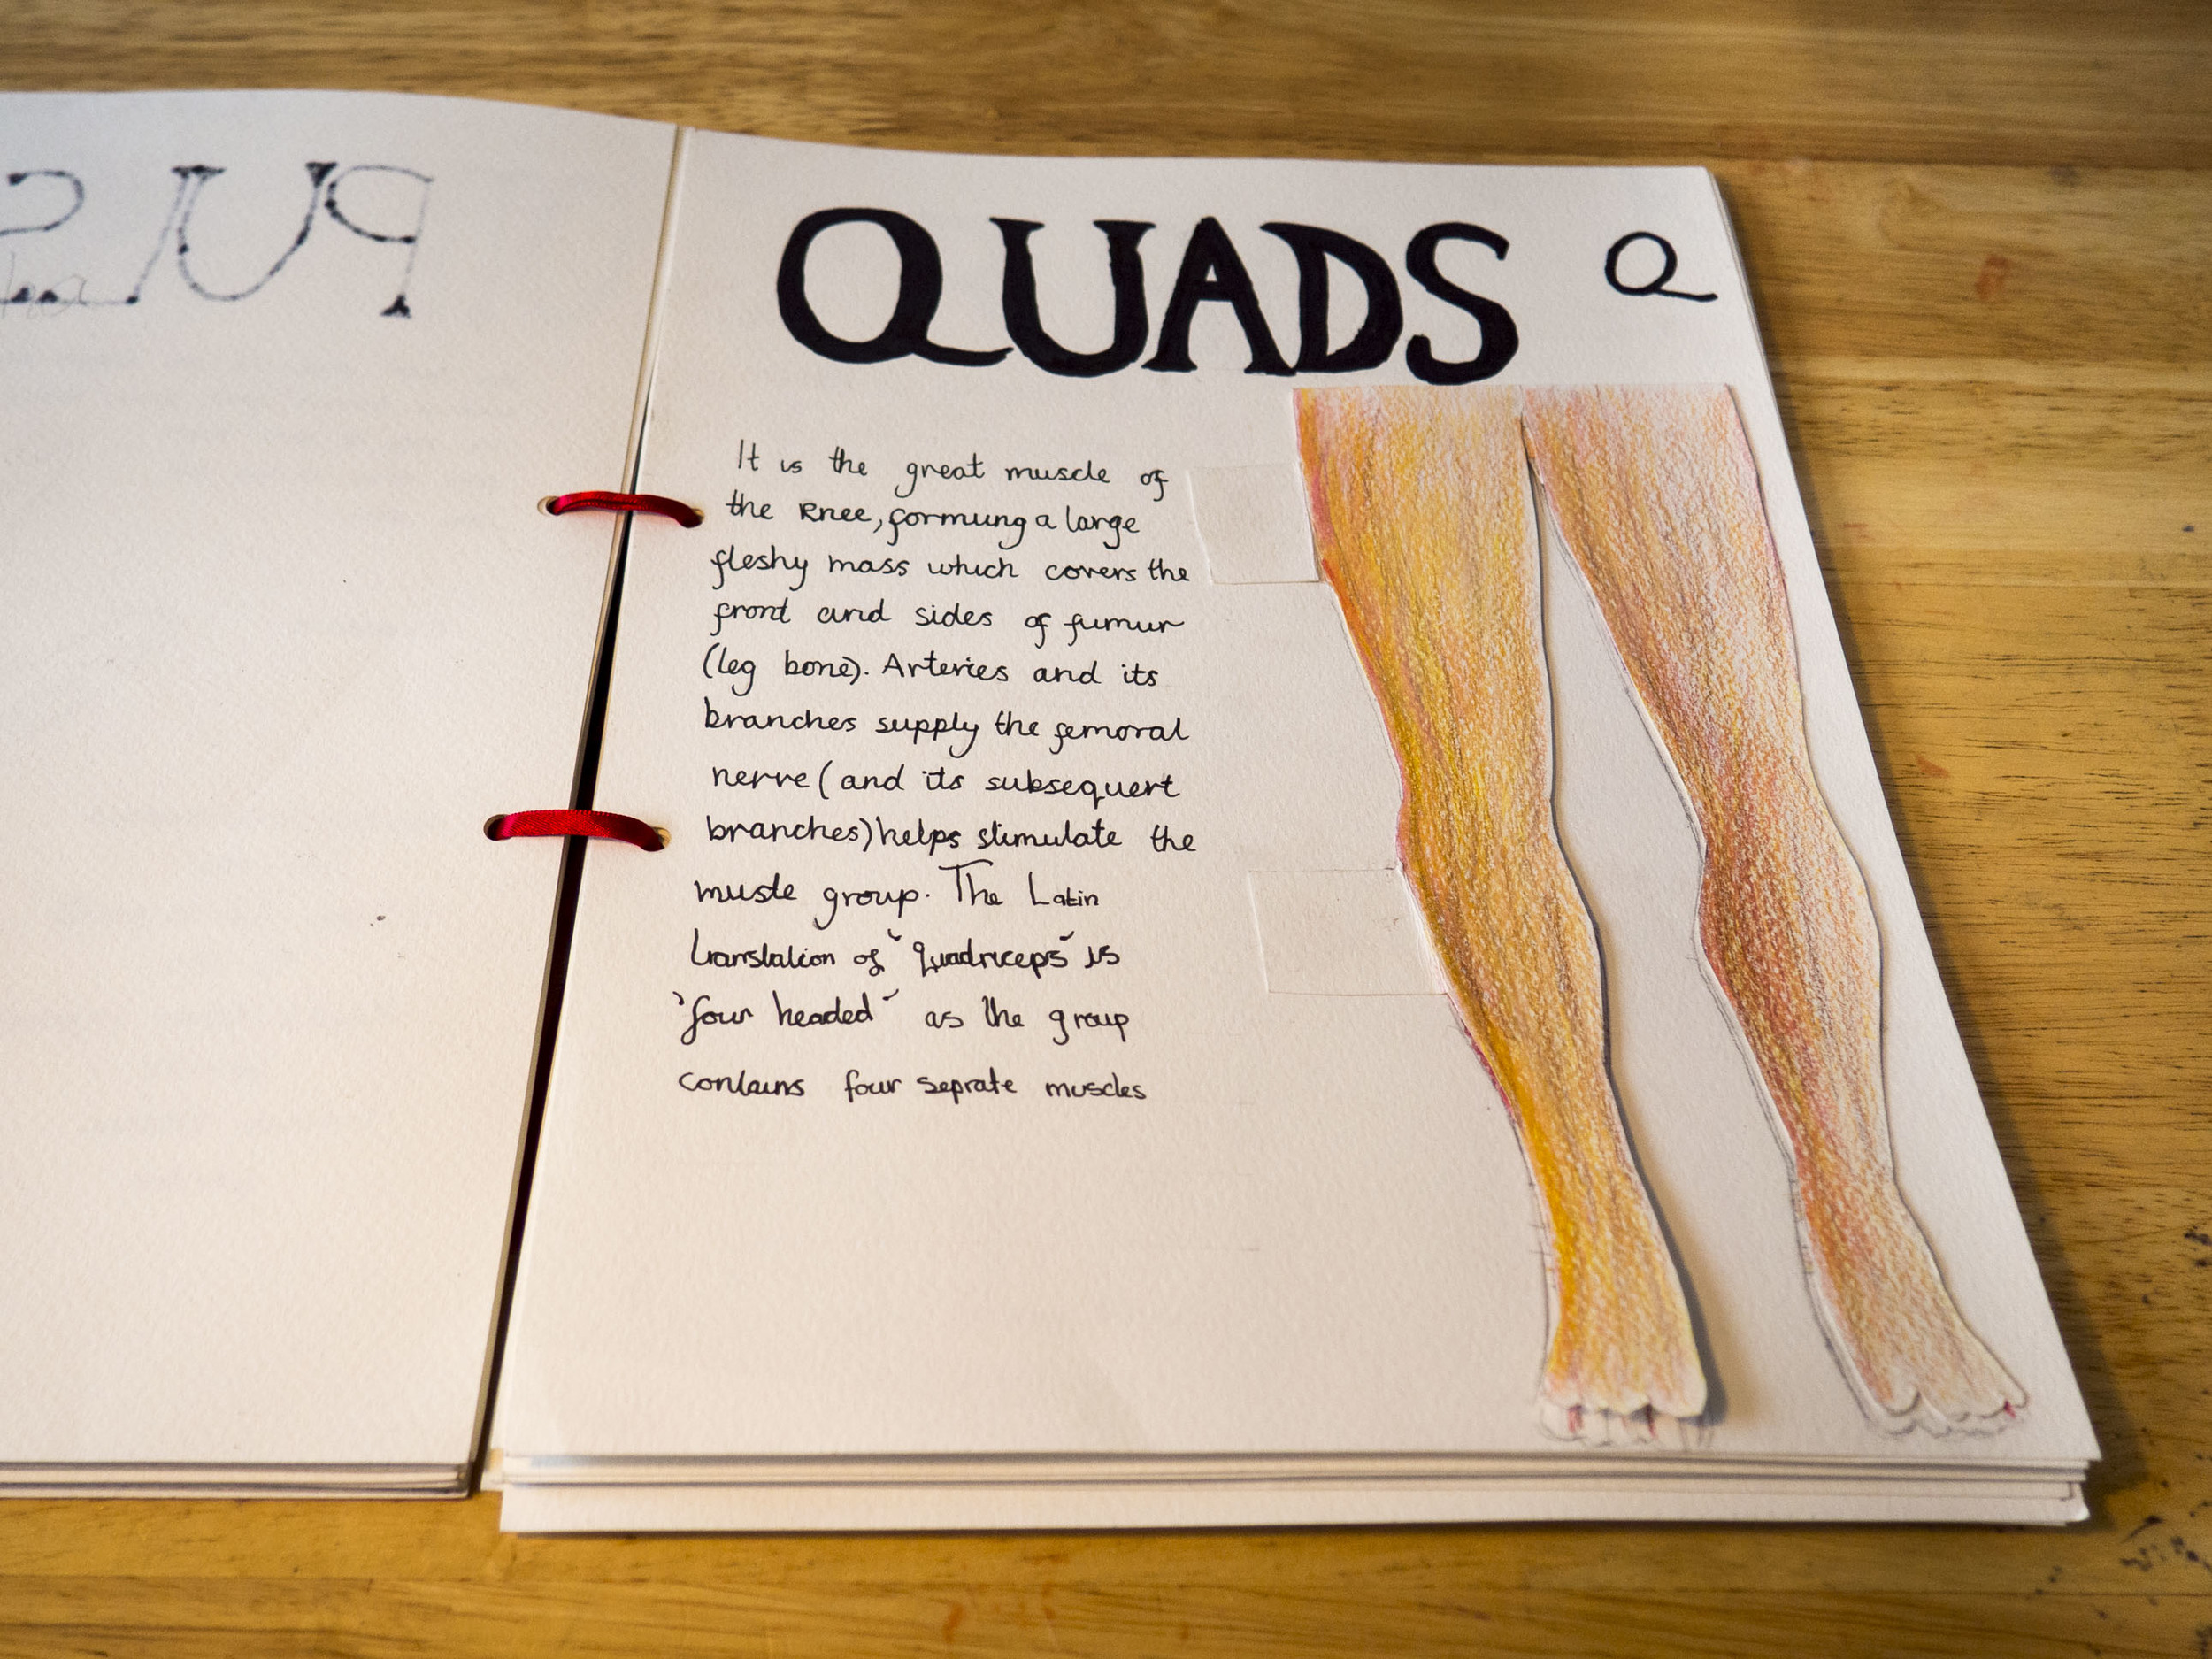 PULS
QUADS Q
It is the great muscle of
the knee, forming a large
fleshy mass which covers the
front and sides of fumur
(leg bone). Arteries and its
branches supply the femoral
nerve (and its subsequent
branches) helps stimulate the
muscle group. The Latin
translation of "quadriceps" is
"four headed" as the group
contains four seprate muscles